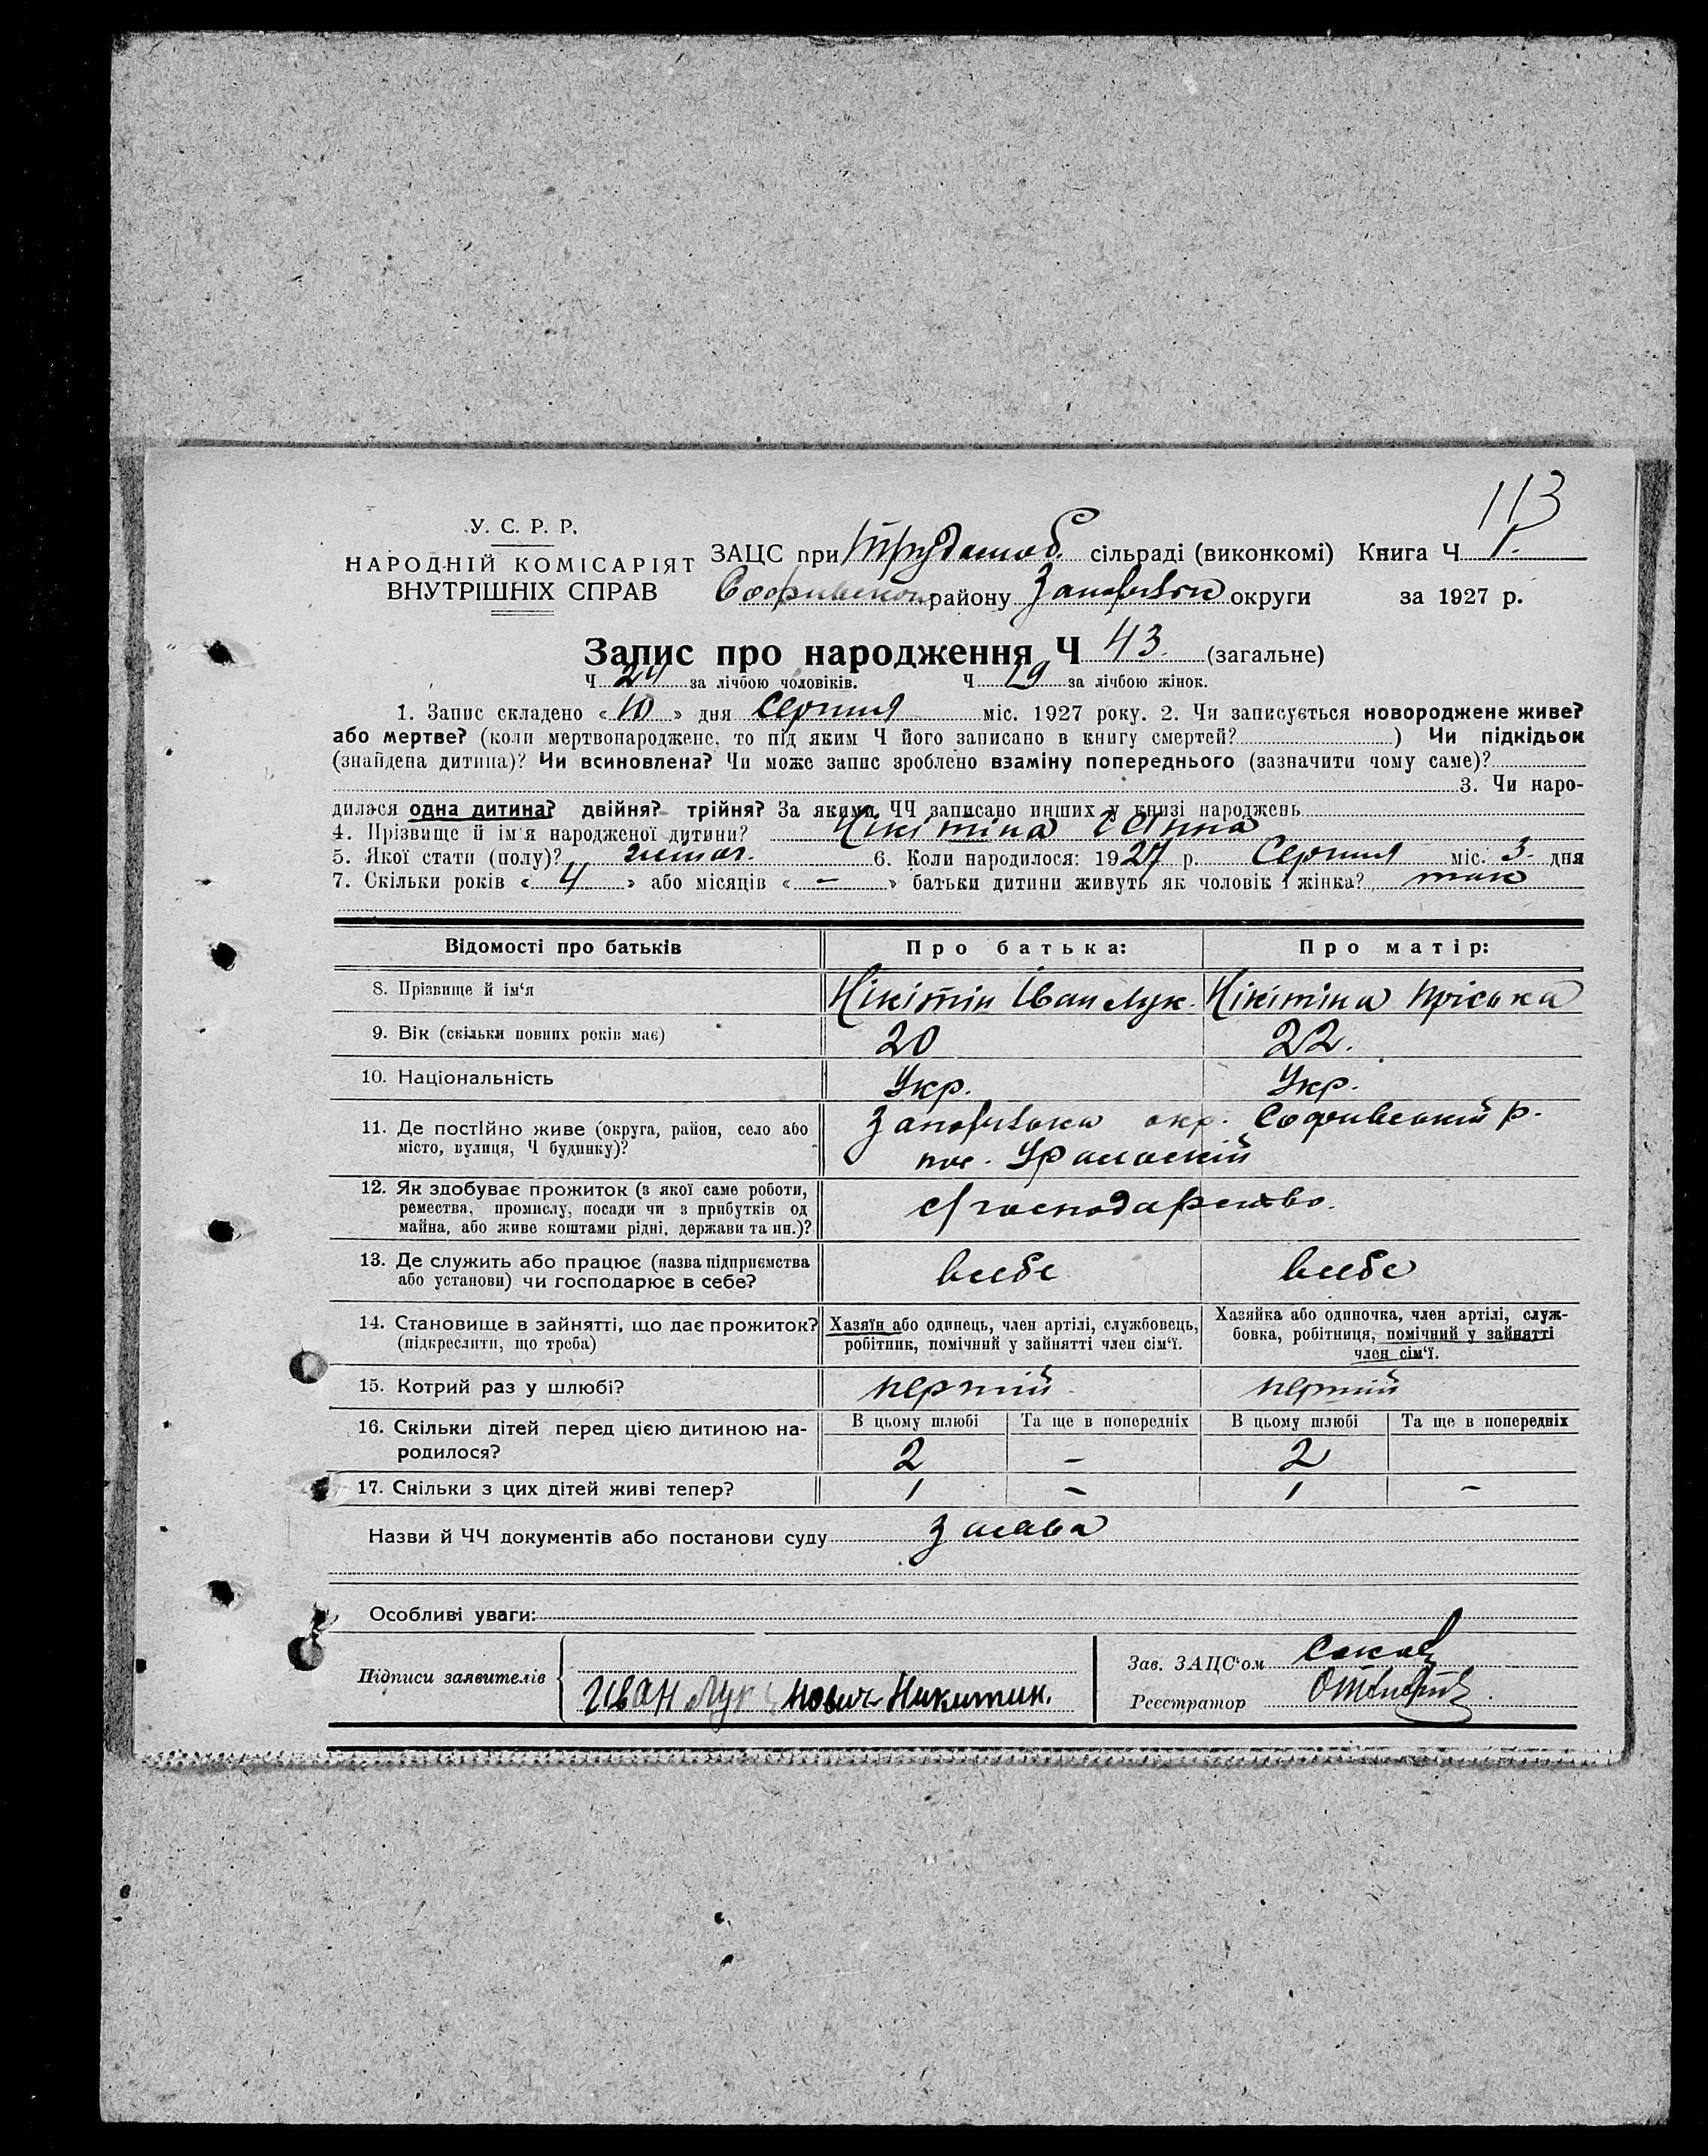 113
У. С. Р. Р.
НАРОДНІЙ КОМІСАРІЯТ
ВНУТРІШНІХ СПРАВ
ЗАЦС при сільраді (виконкомі) Книга Ч 1.
району округи за 1927 р.
Запис про народження Ч 43. (загальне)
Ч 24 за лічбою чоловіків. Ч 19 за лічбою жінок.
1. Запис складено « 10 » дня Серпня міс. 1927 року. 2. Чи записується новороджене живе?
або мертве? (коли мертвонароджене, то під яким Ч його записано в книгу смертей? ) Чи підкідьок
(знайдена дитина)? Чи всиновлена? Чи може запис зроблено взаміну попереднього (зазначити чому саме)?
3. Чи наро-
дилася одна дитина? двійня? трійня? За якими ЧЧ записано инших у книзі народжень
4. Прізвище й ім'я народженої дитини? Нікітіна
5. Якої стати (полу)? жіноч. 6. Коли народилося: 1927 р. Серпня міс. 3. дня
7. Скільки років « 4 » або місяців « – » батьки дитини живуть як чоловік і жінка? так
Відомості про батьків Про батька: Про матір:
8. Прізвище й ім'я Нікітін Іван Лук. Нікітіна Пріська
9. Вік (скільки повних років має) 20 22.
10. Національність Укр. Укр.
11. Де постійно живе (округа, район, село або
місто, вулиця, Ч будинку)?
Запорізька окр. Софиівський р.
пос.
12. Як здобуває прожиток (з якої саме роботи,
ремества, промислу, посади чи з прибутків од
майна, або живе коштами рідні, держави та ин.)?
с/господарство.
13. Де служить або працює (назва підприємства
або установи) чи господарює в себе?
всебе всебе
14. Становище в зайнятті, що дає прожиток?
(підкреслити, що треба)
Хазяїн або одинець, член артілі, службовець,
робітник, помічний у зайнятті член сім'ї.
Хазяйка або одиночка, член артілі, служ-
бовка, робітниця, помічний у зайнятті
член сім'ї.
15. Котрий раз у шлюбі? перший перший
16. Скільки дітей перед цією дитиною на-
родилося?
В цьому шлюбі Та ще в попередніх В цьому шлюбі Та ще в попередніх
2 – 2
17. Скільки з цих дітей живі тепер? 1 – 1 –
Назви й ЧЧ документів або постанови суду Заява
Особливі уваги:
Підписи заявителів Иван Никитин.
Зав. ЗАЦС'ом
Реєстратор